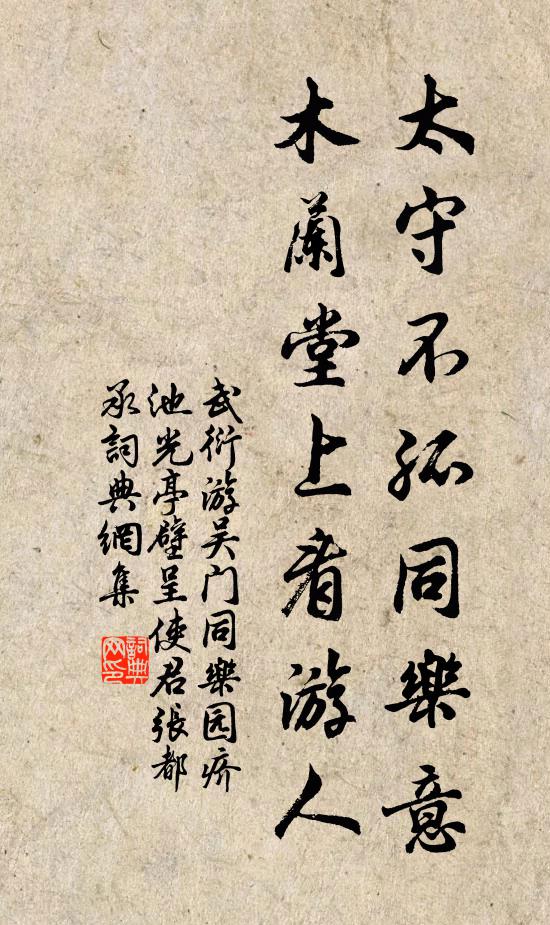 太守不孤同樂意
木蘭堂上看游人
武衍游吴门同樂园疥
池光亭壁呈使君張都
承詞典網集
詞典網印